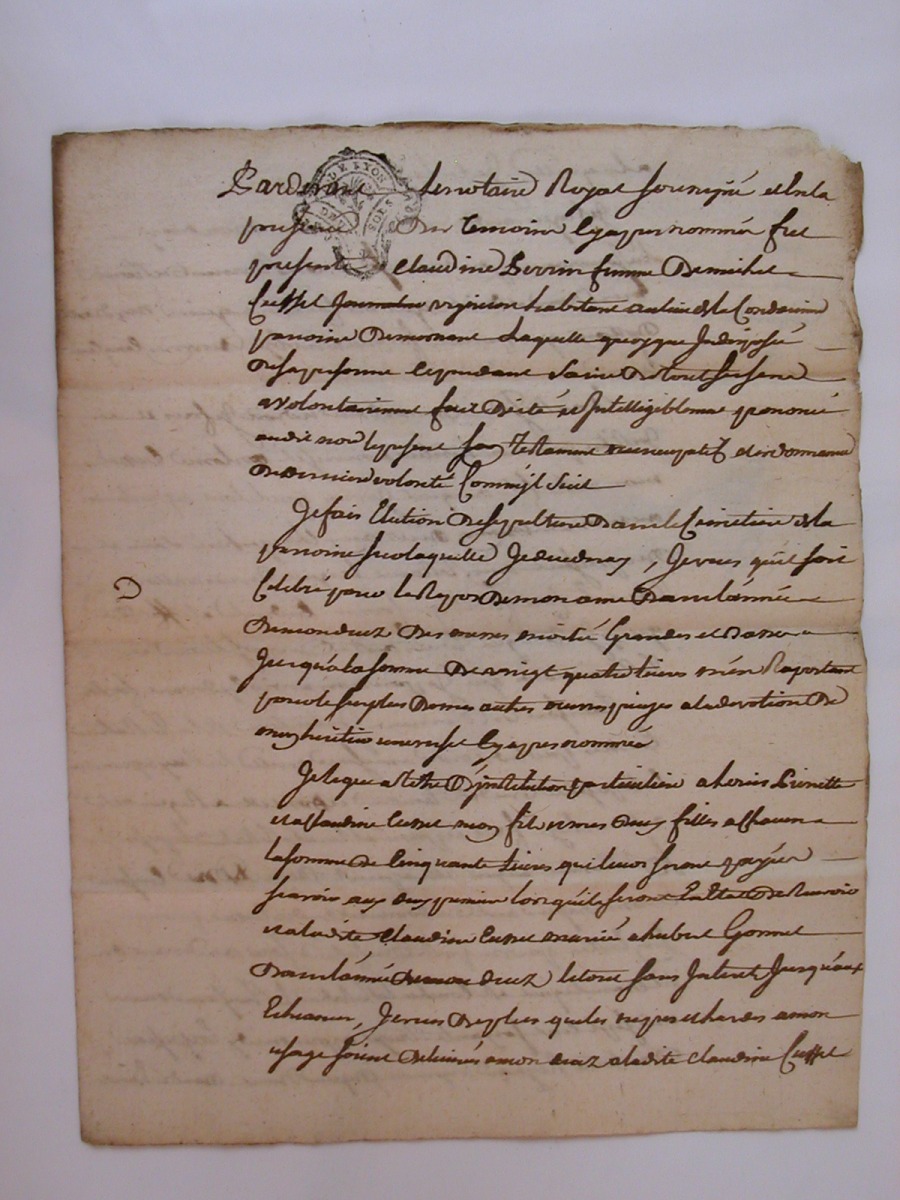 Pardevant le notaire Royal sousigné et en la
presence des temoins cy apres nommés fut
presente Claudine femme de michel
Cusset vigneron habitant au lieu de la Cordonniere
paroisse de mornant Laquelle quoyque Indisposée
de sa personne cependant saine de tout ses sens
a volontairement fait dicté et Intelligiblement prononcé
audit no.re le present son testament nuncupatif et ordonnance
de derniere volonté Comm'jl suit
Je fais Election de sepulture dans le Cimetiere de la
paroisse sur laquelle Je decederay, Je veux qu'il soit
Celebré pour le Repos de mon ame dans l'année
de mon decez des messes moitié Grandes et Basses
Jusqu'a la somme de vingt quatre livres m'en Raportant
pour le surplus de mes autres œuvres pieuses a la devotion de
mon heritier universel cy apres nommé
Je legue a titre d'jnstitution particuliere a
et a Claudine Cusset mon fils et mes deux filles a chacun
la somme de Cinquante Livres qui leurs seront payées
scavoir aux deux premiers lors qu'ils seront En Etat de Recevoir
et a ladite Claudine Cusset mariée a hubert Gonnet
dans l'année de mon decez le tout sans Interet Jusqu'aux
Echeances, Je veux de plus que les nippes et hardes a mon
usage soient delivrés a mon decez a ladite Claudine Cusset
DE LYON